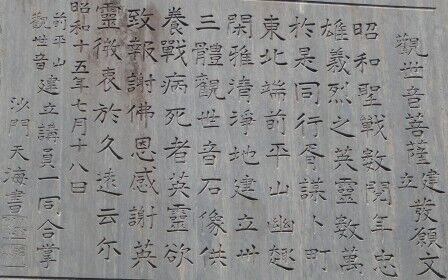 觀世音菩薩建立發願文
昭和聖戦数閲年忠
雄義烈之英靈数萬
於是同行胥謀卜町
東北端前平山幽趣
閑雅清淨地建立卅
三體觀世音石像供
養戰病死者英靈欲
致報謝佛恩感謝英
靈微衷於久遠云尓
昭和十五年七月十八日
前平山觀世音建立講員一同合掌
沙門天海書